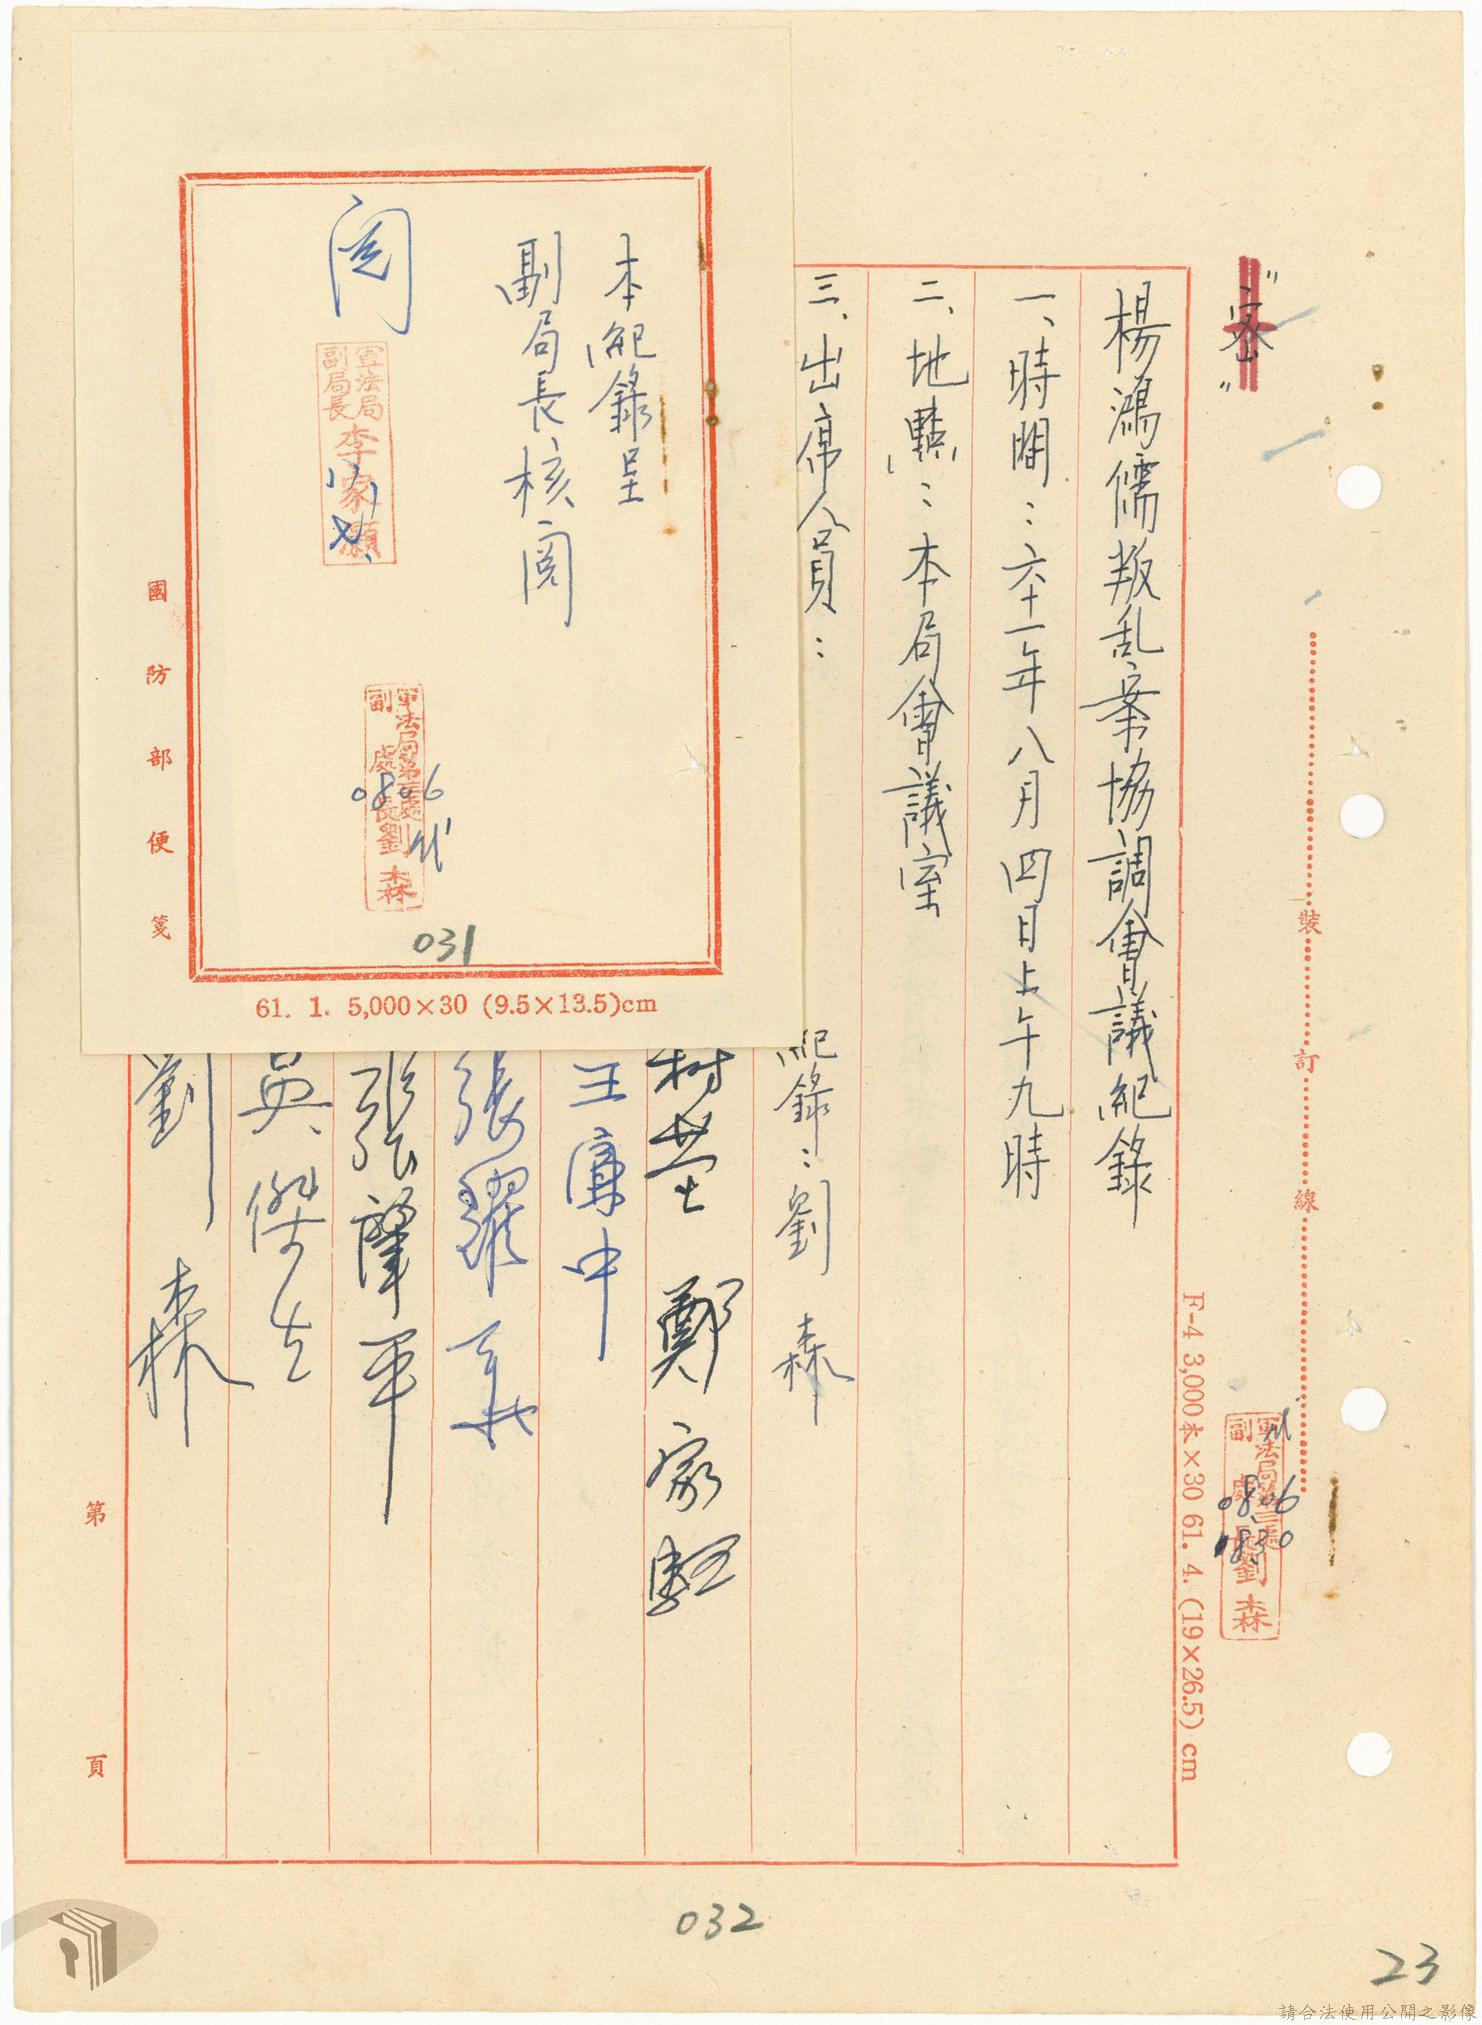 "密"
楊鴻儒叛乱案協調會議紀錄
一、時間：六十一年八月四日上午九時
二、地點：本局會議室
三、出席人員：
紀錄：劉 森
鄭家
王 中
張耀華
張肇平
吳傑
劉 森
本紀錄呈
副局長核閱
閱
軍法局
副局長
李家灝
軍法局第三處
副處長
劉森
0806
代
031
國防部便箋
61. 1. 5,000×30 (9.5×13.5)cm
裝
訂
線
F-4 3,000本×30 61. 4. (19×26.5) cm
軍法局第三處
副處長
劉森
0806
0830
第 頁
032
23
請合法使用公開之影像